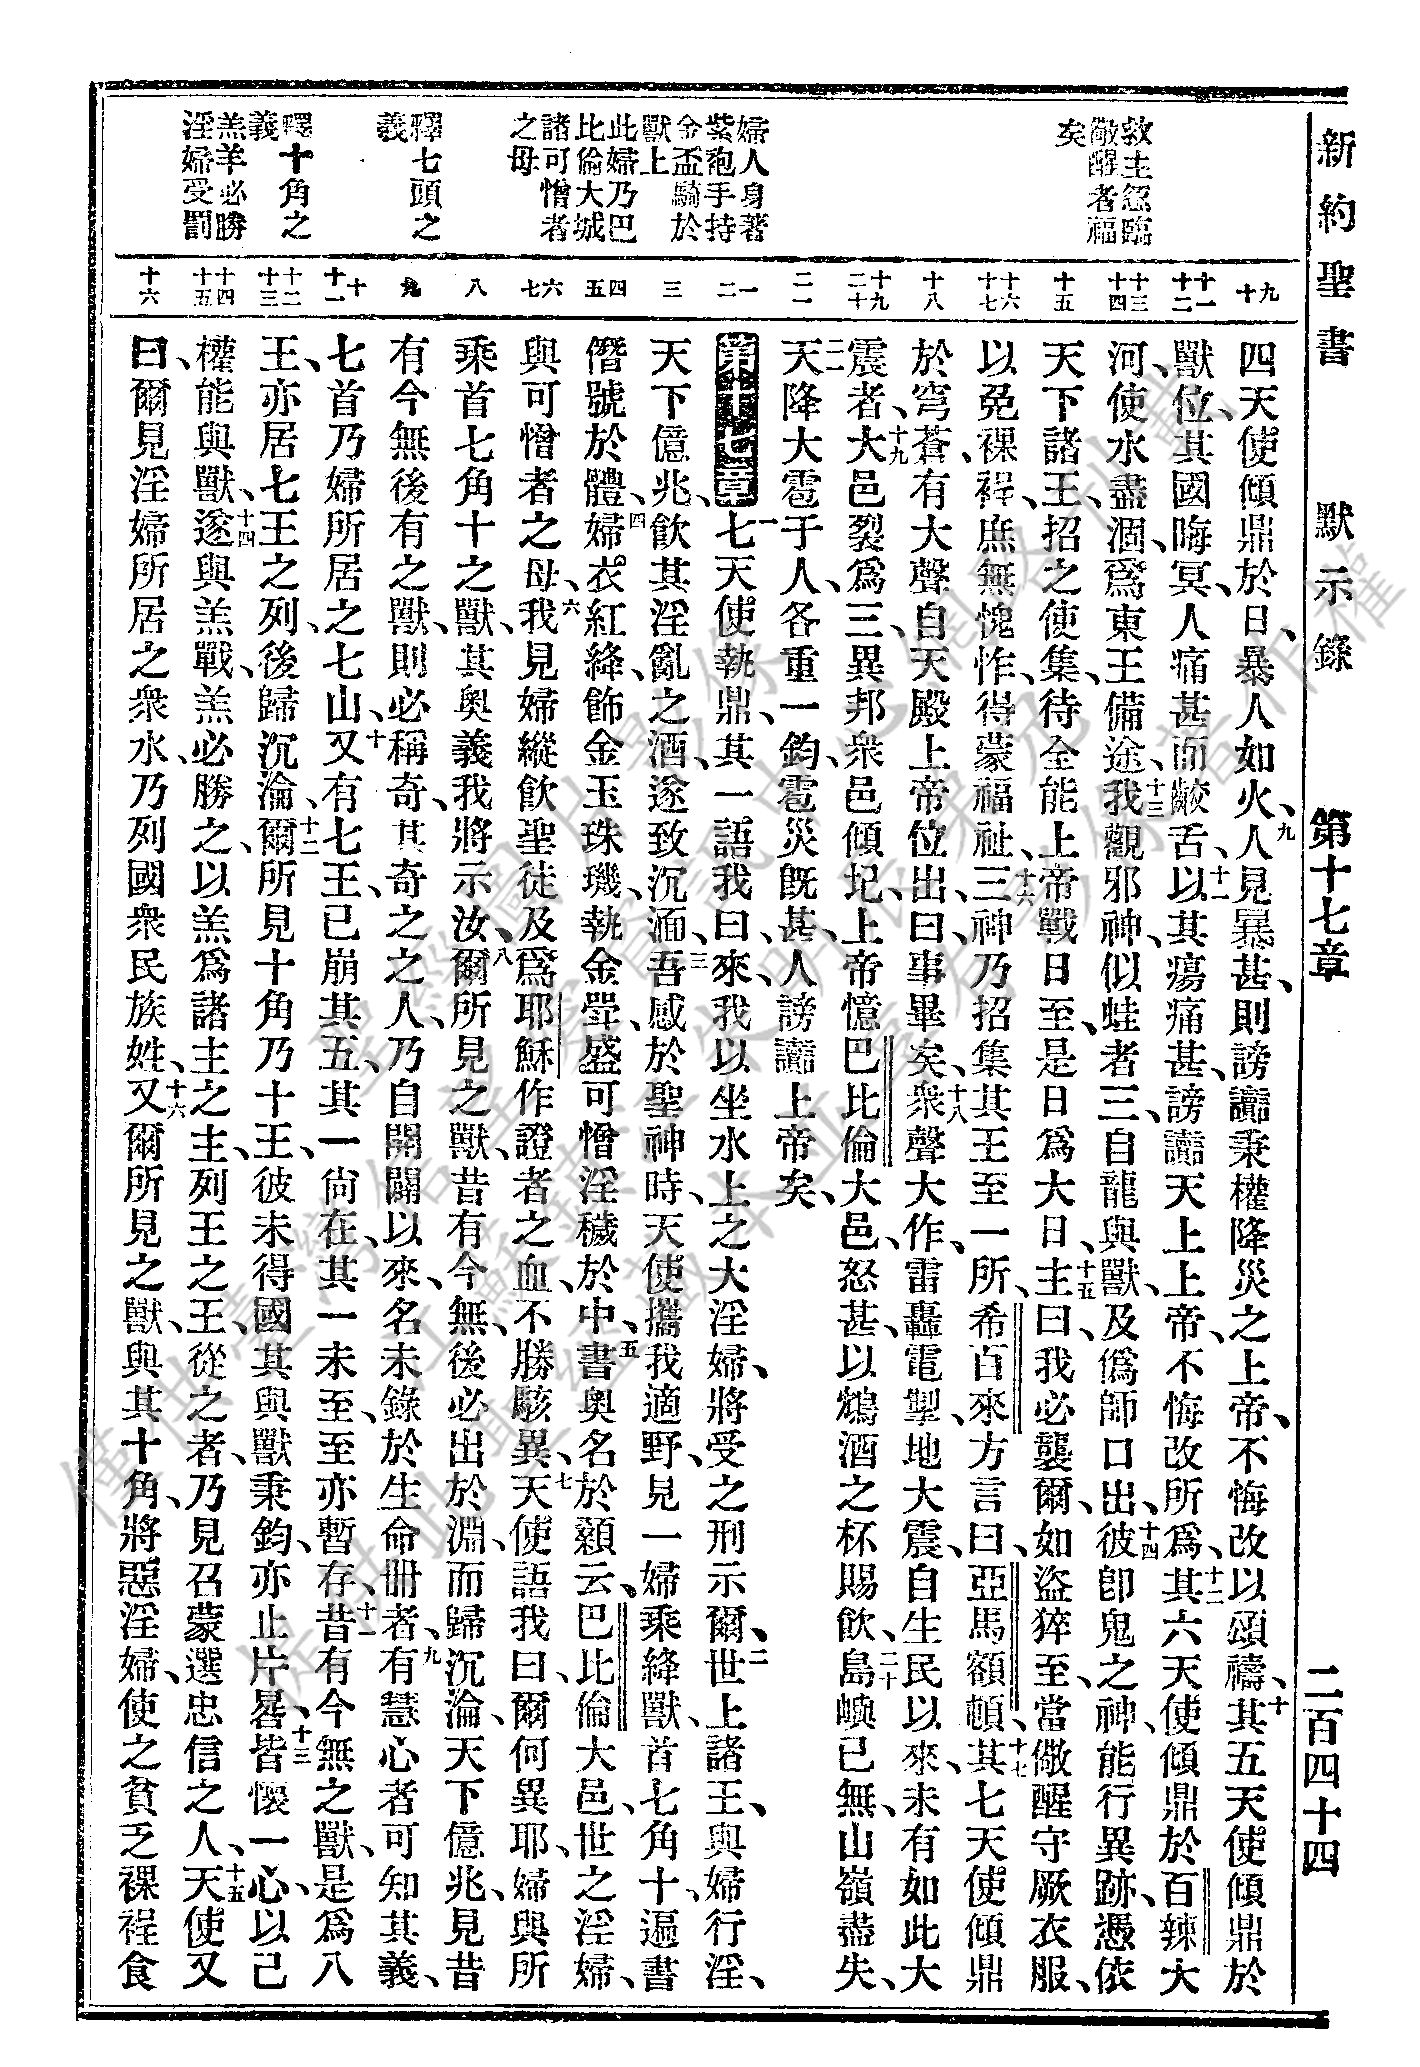 新約聖書 默示錄 第十七章 二百四十四
救主忽臨
儆醒者福
矣
婦人身著
紫袍手持
金盃騎於
獸上
此婦乃巴
比倫大城
諸可憎者
之母
釋七頭之
義
釋十角之
義
羔羊必勝
淫婦受罰
九
十
十一
十二
十三
十四
十五
十六
十七
十八
十九
二十
二一
一
二
三
四
五
六
七
八
九
十
十一
十二
十三
十四
十五
十六
四天使傾鼎於日、暴人如火、九人見暴甚、則謗讟秉權降災之上帝、不悔改以頌禱、十其五天使傾鼎於
獸位、其國晦冥、人痛甚而齩舌、十一以其瘍痛甚、謗讟天上上帝、不悔改所爲、十二其六天使傾鼎於百辣大
河、使水盡涸、爲東王備途、十三我觀邪神、似蛙者三、自龍與獸、及僞師口出、十四彼卽鬼之神、能行異跡、憑依
天下諸王、招之使集、待全能上帝戰日至、是日爲大日、十五主曰、我必襲爾、如盜猝至、當儆醒守厥衣服、
以免裸裎、庶無愧怍、得蒙福祉、十六三神乃招集其王至一所、希百來方言曰、亞馬額頓、十七其七天使傾鼎
於穹蒼、有大聲自天殿上帝位出、曰、事畢矣、十八衆聲大作、雷轟電掣、地大震、自生民以來、未有如此大
震者、十九大邑裂爲三、異邦衆邑傾圮、上帝憶巴比倫大邑、怒甚、以鴆酒之杯賜飲、二十島嶼已無、山嶺盡失、
二一天降大雹于人、各重一鈞、雹災旣甚、人謗讟上帝矣、
第十七章 一七天使執鼎、其一語我曰、來、我以坐水上之大淫婦、將受之刑示爾、二世上諸王、與婦行淫、
天下億兆、飲其淫亂之酒、遂致沉湎、三吾感於聖神時、天使攜我適野、見一婦乘絳獸、首七角十、遍書
僭號於體、四婦衣紅絳、飾金玉珠璣、執金斝、盛可憎淫穢於中、五書奧名於顙云、巴比倫大邑、世之淫婦、
與可憎者之母、六我見婦縱飲聖徒及爲耶穌作證者之血、不勝駭異、七天使語我曰、爾何異耶、婦與所
乘首七角十之獸、其奧義我將示汝、八爾所見之獸、昔有今無、後必出於淵、而歸沉淪、天下億兆、見昔
有今無後有之獸、則必稱奇、其奇之之人、乃自開闢以來、名未錄於生命冊者、九有慧心者可知其義、
七首乃婦所居之七山、十又有七王、已崩其五、其一尙在、其一未至、至亦暫存、十一昔有今無之獸、是爲八
王、亦居七王之列、後歸沉淪、十二爾所見十角乃十王、彼未得國、其與獸秉鈞、亦止片晷、十三皆懷一心、以己
權能與獸、十四遂與羔戰、羔必勝之、以羔爲諸主之主、列王之王、從之者、乃見召蒙選忠信之人、十五天使又
曰、爾見淫婦所居之衆水、乃列國衆民族姓、十六又爾所見之獸、與其十角、將惡淫婦、使之貧乏裸裎、食